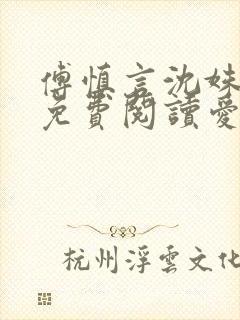 傅慎言沈姝
免費閱讀愛
杭州浮雲文化